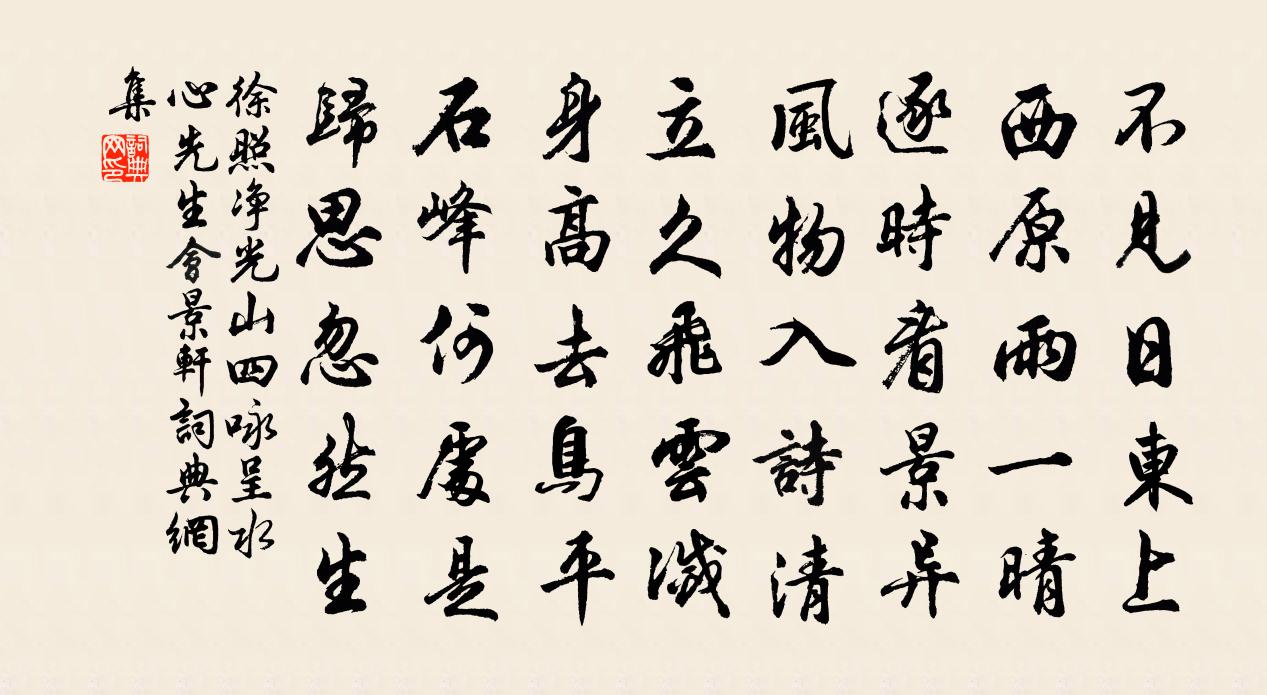 不見日東上
西原雨一晴
逐時看景异
風物入詩清
立久飛雲滅
身高去鳥平
石峰何處是
歸思忽然生
徐照净光山四咏呈水
心先生會景軒詞典網
集
詞典
网印